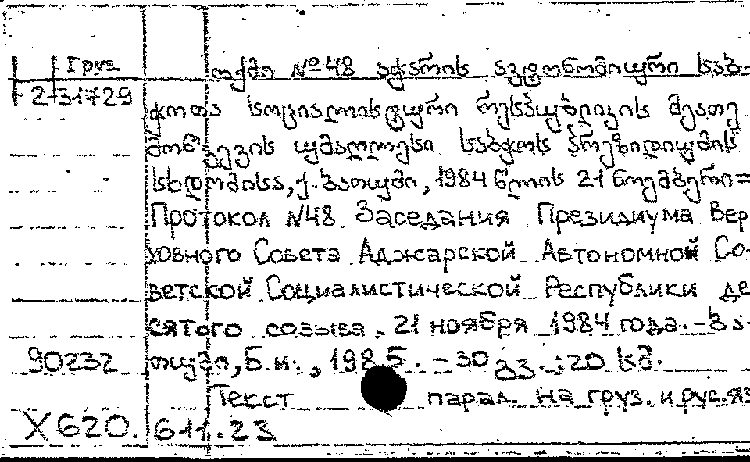 Груз
ოქმი №48 აჭარის ავტონომიური საბ-
2-31729
ჭოთა სოციალისტური რესპუბლიკის მეათე
მოწვევის უმაღლესი საბჭოს პრეზიდიუმის
სხდომისა, ქ. ბათუმი, 1984 წლის 21 ნოემბერი=
Протокол №48 Заседания Президиума Вер
ховного Совета Аджарской Автономной Со-
ветской Социалистической Республики де
сятого созыва, 21 ноября 1984 года.-ბა-
90232 თუმი, Б.и., 1985. - 30 გვ.; 20 სმ.
Текст парал. на груз. и рус. яз
X620. 611.23